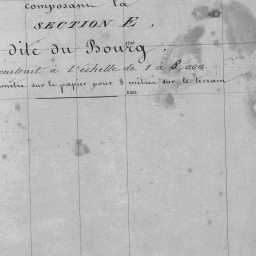 composant la
SECTION E.
dite du Bourg.
à l'échelle de 1 à 5,000
sur le papier pour 5 mètres sur le terrain